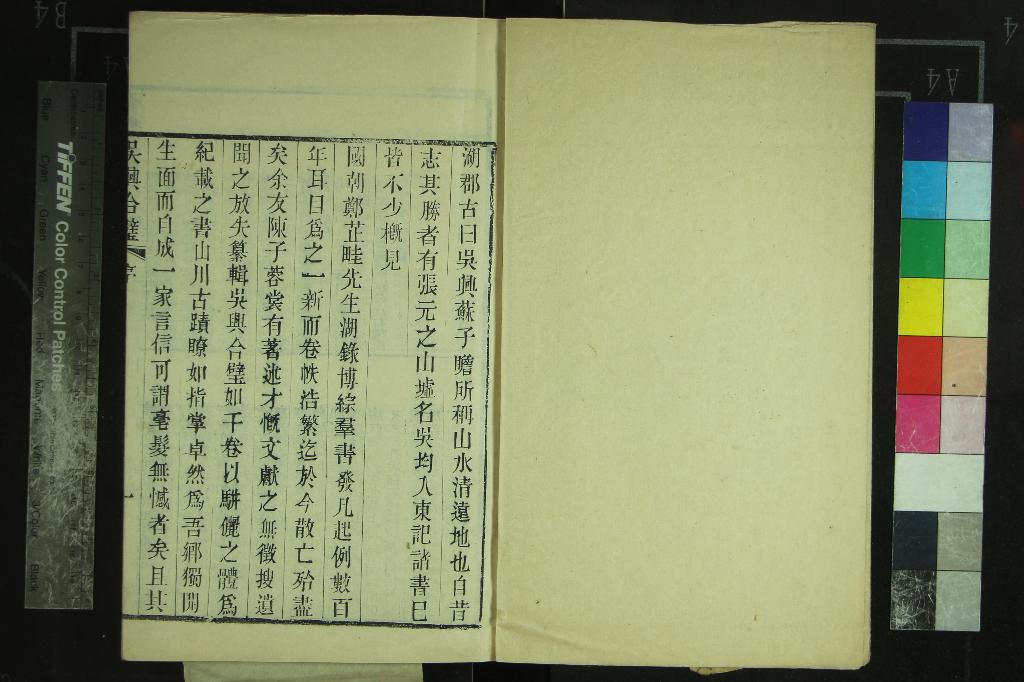 湖郡古曰吳興蘇子瞻所稱山水清遠地也自昔
志其勝者有張元之山墟名吳均入東記諸書已
皆不少概見
國朝鄭芷畦先生湖錄博綜羣書發凡起例數百
年耳目爲之一新而卷帙浩繁迄於今散亡殆盡
矣余友陳子蓉裳有著述才慨文獻之無徵搜遺
聞之放失纂輯吳興合璧如干卷以駢儷之體爲
紀載之書山川古蹟瞭如指掌卓然爲吾鄉獨開
生面而自成一家言信可謂毫髮無憾者矣且其
吳興合璧 序 一
TIFFEN Color Control Patches
Blue Cyan Green Yellow Red Magenta White 3/Color Black
Centimetres
B4
A4
A4
4